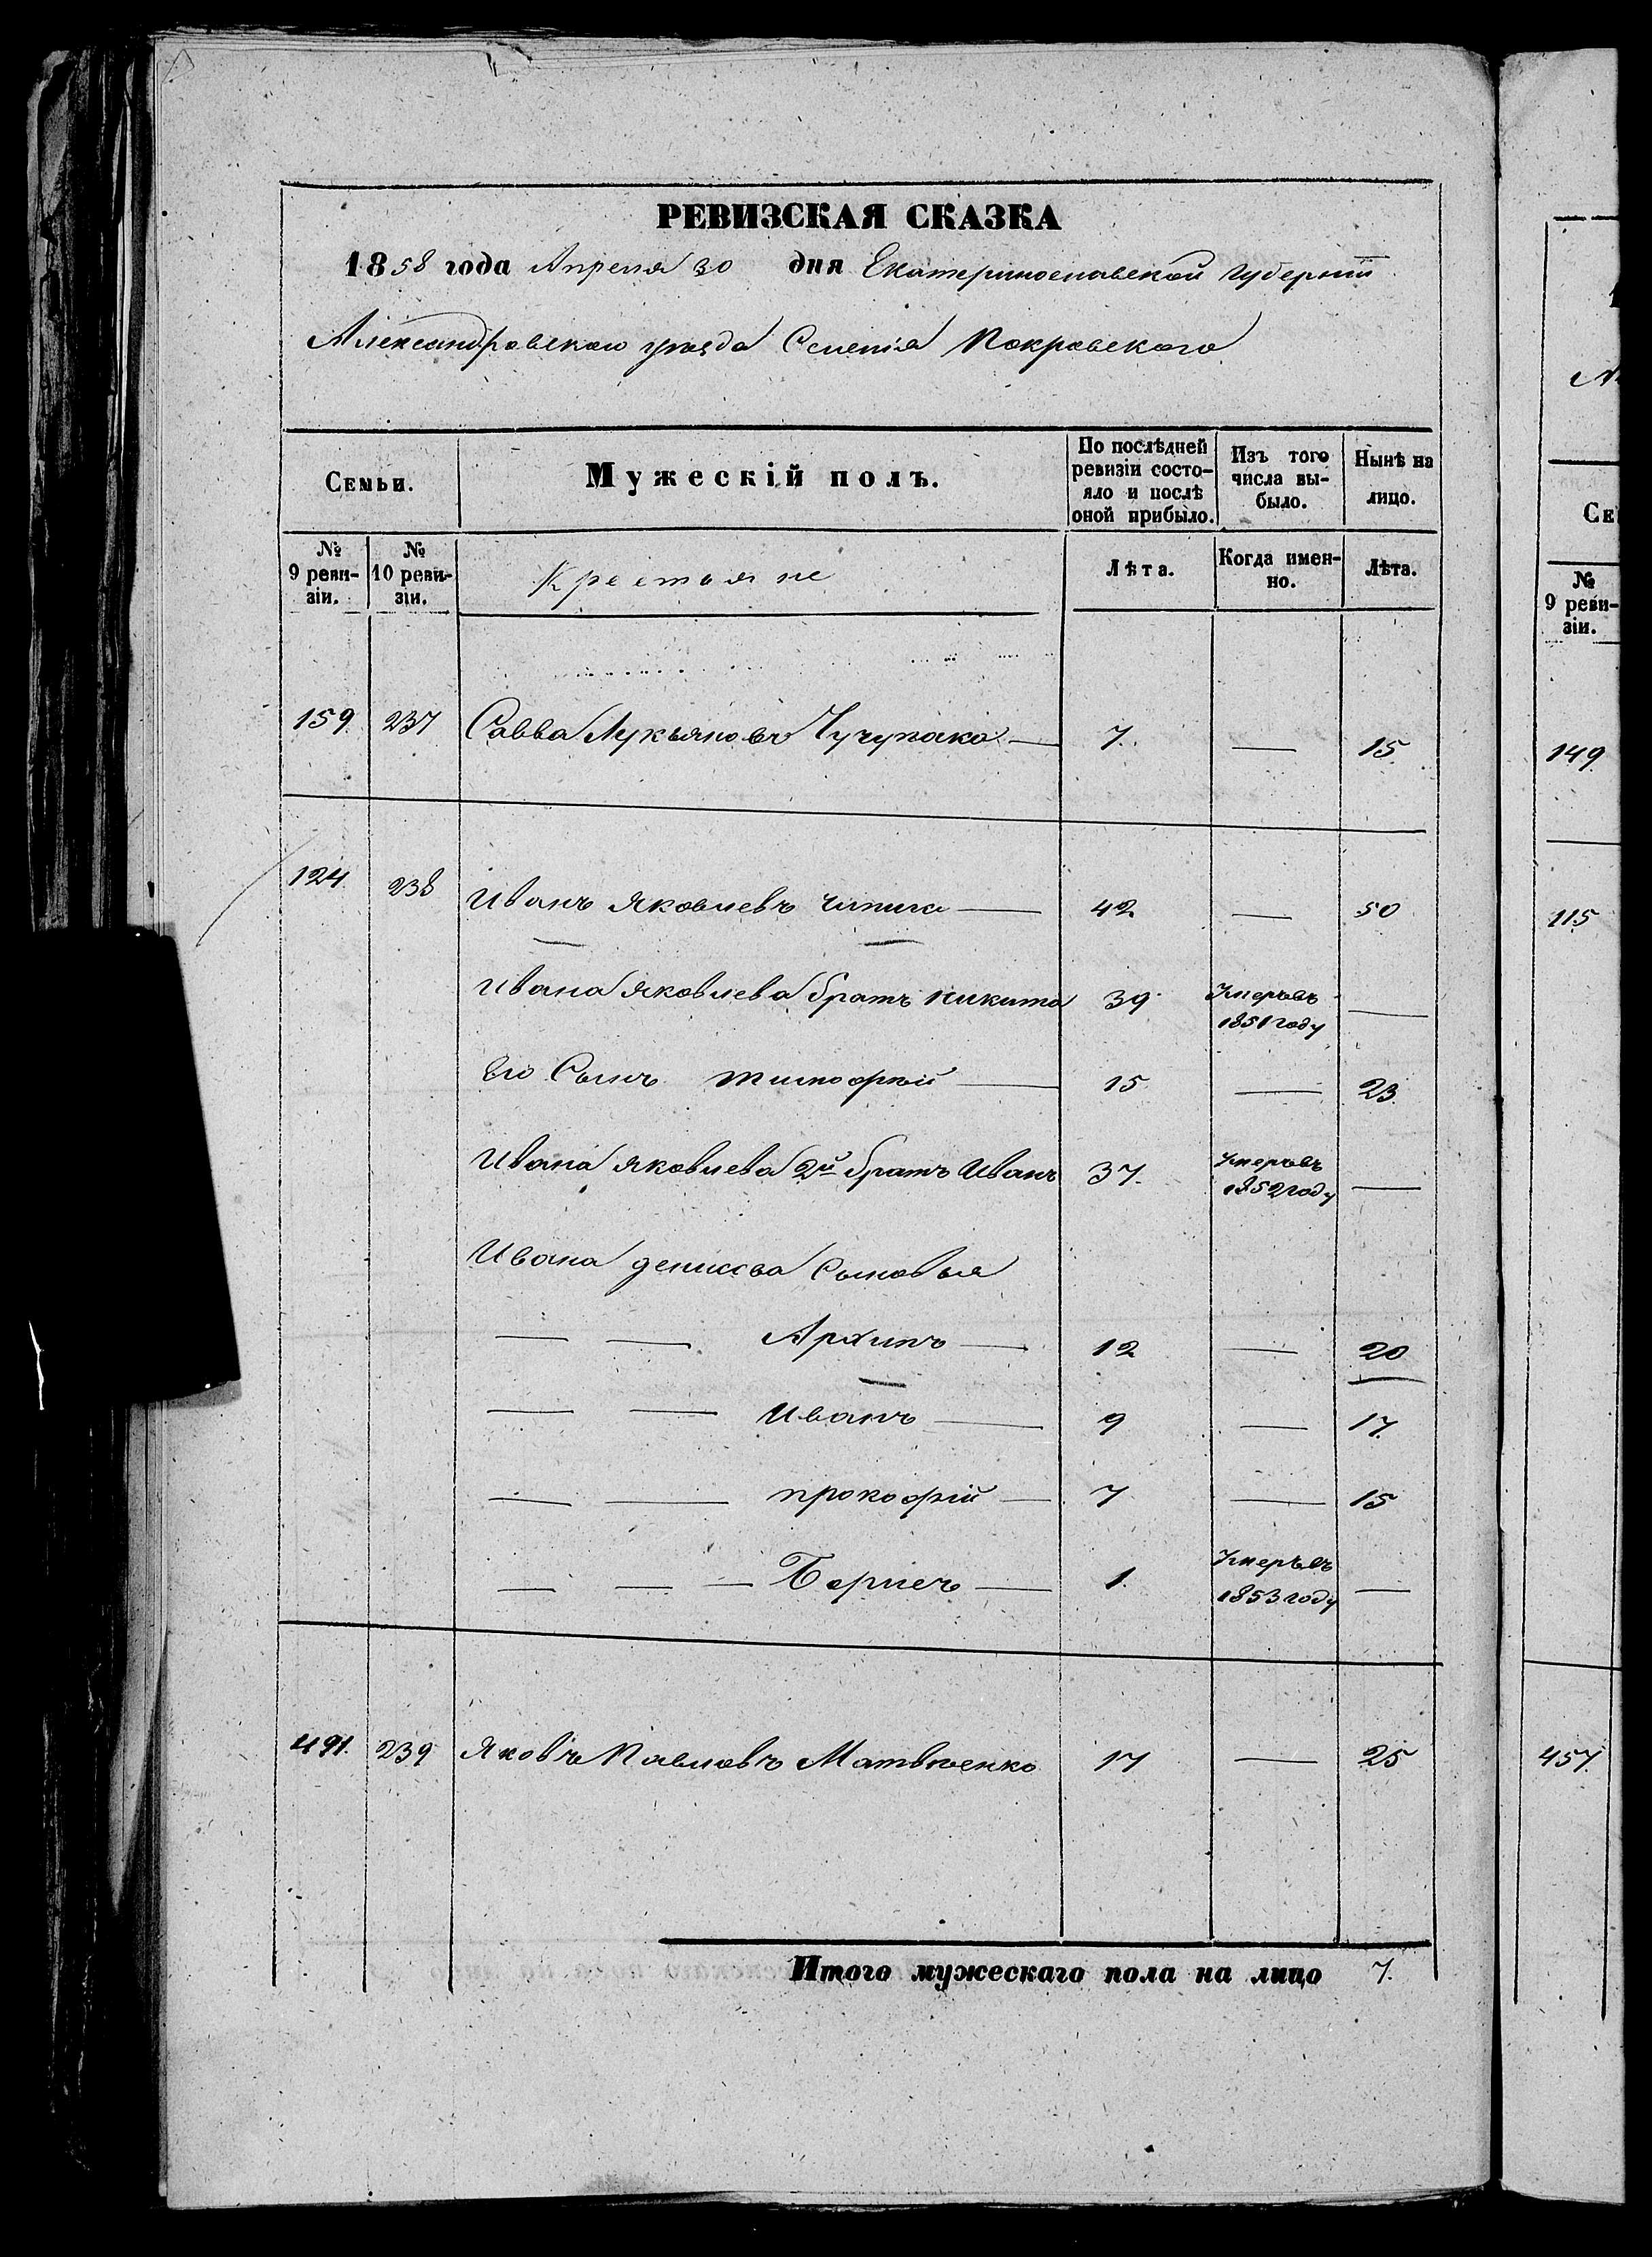 РЕВИЗСКАЯ СКАЗКА
1858 года Апреля 30 дня Екатеринославской Губернiи
Александровского уезда Селенiя Покровского
Семьи. Мужескiй полъ. По послѣдней ревизiи состо-яло и послѣ оной прибыло. Изъ того числа вы-было. Нынѣ на лицо.
№ 9 реви-зiи. № 10 реви-зiи. Крестьяне Лѣта. Когда имен-но. Лѣта.
159. 237 Савва Лукьяновъ Чучупака 7. — 15
124. 238 Иванъ Яковлевъ 42 — 50
Ивана Яковлева братъ Никита 39 Умеръ въ 1851 году —
Его Сынъ Тимофѣй 15 — 23
Ивана Яковлева 2й братъ Иванъ 37. Умеръ въ 1852 году —
Ивана Денисова Сыновья
— — Архипъ — 12 — 20
— — Иванъ — 9 — 17
— — Прокофiй — 7 — 15
— — — 1. Умеръ въ 1853 году —
491. 239 Яковъ Павловъ Матвѣенко 17 — 25
Итого мужескаго пола на лицо 7.
№
9 реви-
зiи.
149.
115
457.